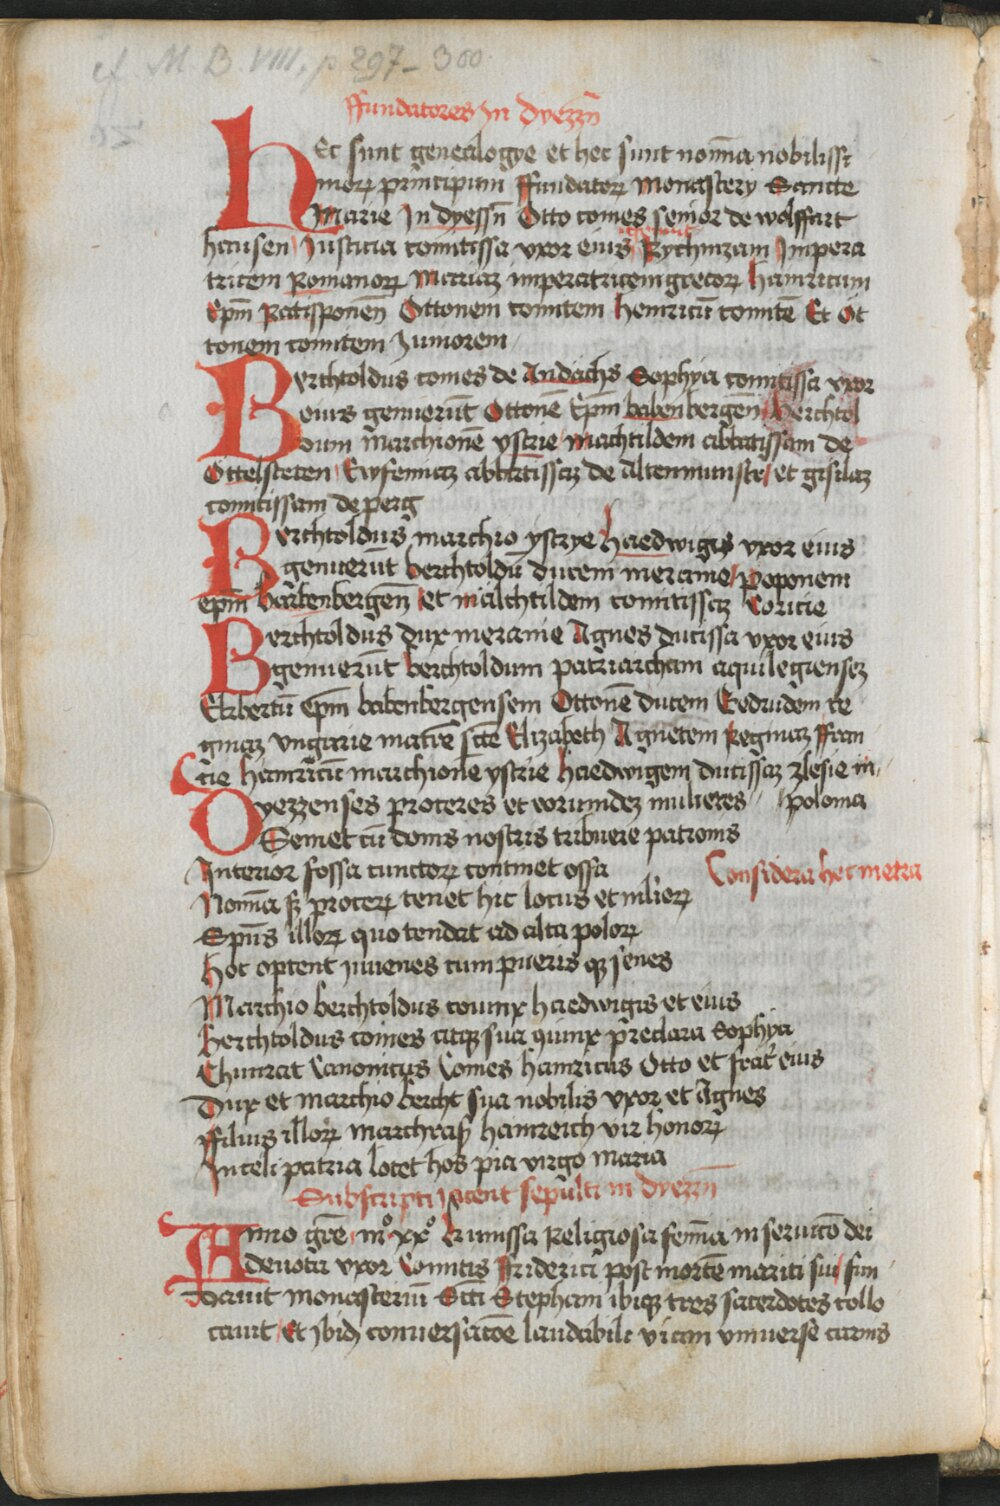 cf. M. B. VIII, p 297–300
ffundatores in Dyezzn̄
HEc sunt genealogye et hec sunt nom̄a nobilissi
morꝝ principium ffundatorꝝ Monastery Sancte
Marie in dyessn̄ Otto comes senior de wolffart
hausen Justicia comitissa vxor eius Rychinzam Impera
tricem Romanorꝝ Mariaꝫ imperatricem grecorꝝ hainricum
Ep̄m Ratisponen̄ Ottonem comitem heinricū comitē Et Ot
tonem comitem Juniorem
Berchtoldus comes de Andachs Sophya comitissa vxor
eius genuerūt Ottonē Ep̄m babenbergen̄ Berchtol
dum Marchionē ystrie Machtildem abbatissam de
Ottelsteten Eufemiaꝫ abbatissaꝫ de altenmunster et gisilaꝫ
comitissam de perg
Berchtoldus marchio ystrye haedwigis vxor eius
genuerūt berchtoldū ducem meranie poponem
ep̄m babenbergen̄ et malchtildem comitissaꝫ Goricie
Berchtoldus dux meranie Agnes ducissa vxor eius
genuerūt berchtoldum patriarcham aquilegienseꝫ
Ekbertū ep̄m babenbergensem Ottonē ducem Gedrudem re
ginaꝫ vngarie matrē sc̄te Elizabeth Agnetem Reginaꝫ ffran
cie hainricū marchionē ystrie haedwigem ducissaꝫ zlesie in
Dyezzenses proceres et eorumdeꝫ mulieres polonia
Semet cū donis nostris tribuere patronis
Interior fossa cunctorꝝ continet ossa
Considera hec metra
Nom̄a sꝫ procerꝝ tenet hic locus et mlierꝝ
Sp̄us illorꝝ quo tendat ad alta polorꝝ
Hoc optent iuuenes cum pueris qꝫ senes
Marchio berchtoldus coniux haedwigis et eius
Berchtoldus comes atqꝫ sua 9iunx preclara Sophya
Chunrat Canonicus Comes hainricus Otto et frat̄ eius
Dux et marchio bercht sua nobilis vxor et Agnes
ffilius illorꝝ marchraf hainreich vir honorꝝ
In celi patria locet hos pia virgo maria
Subscripti iacent sepulti in dyezzn̄
Anno grē mº xxº kunissa Religiosa fem̄a in seruicō dei
deuota vxor Comitis Friderici post mortē mariti sui fun
dauit monasteriū Scti Stephani ibiqꝫ tres sacerdotes collo
cauit Et ibidꝫ conuersacōe laudabile vitam vniuerse carnis